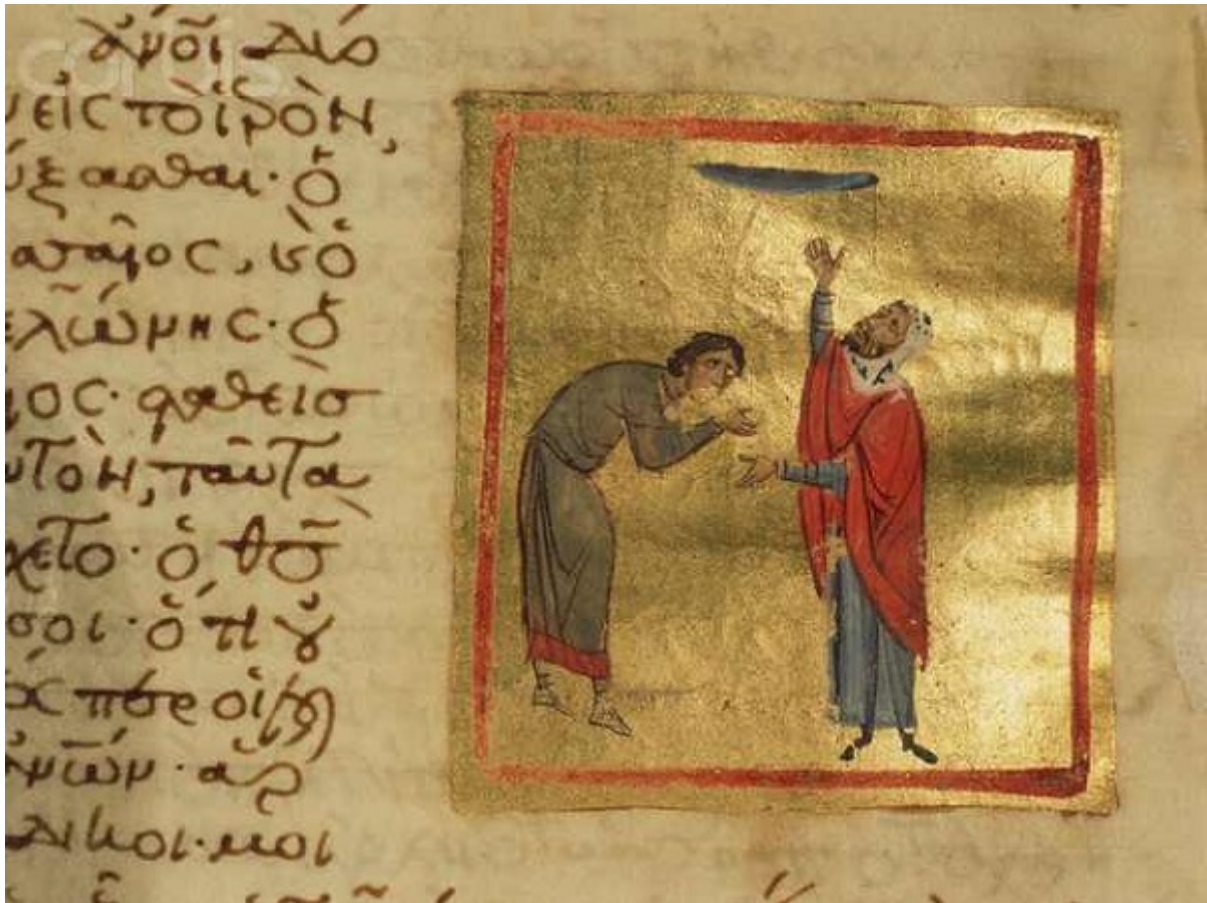 ἄνοι δύο
ν εἰς τὸ ἱρὸν,
ύξασθαι· ὁ
σαῖος, κ ὁ
ελώνης· ὁ
ῖος· σταθεὶσ
υτὸν, ταῦτα
χετο· ὁ θσ
σοι· ὅτι οὐ
περ οἱ
ἀνων· ἁρ
δικοι· μοι